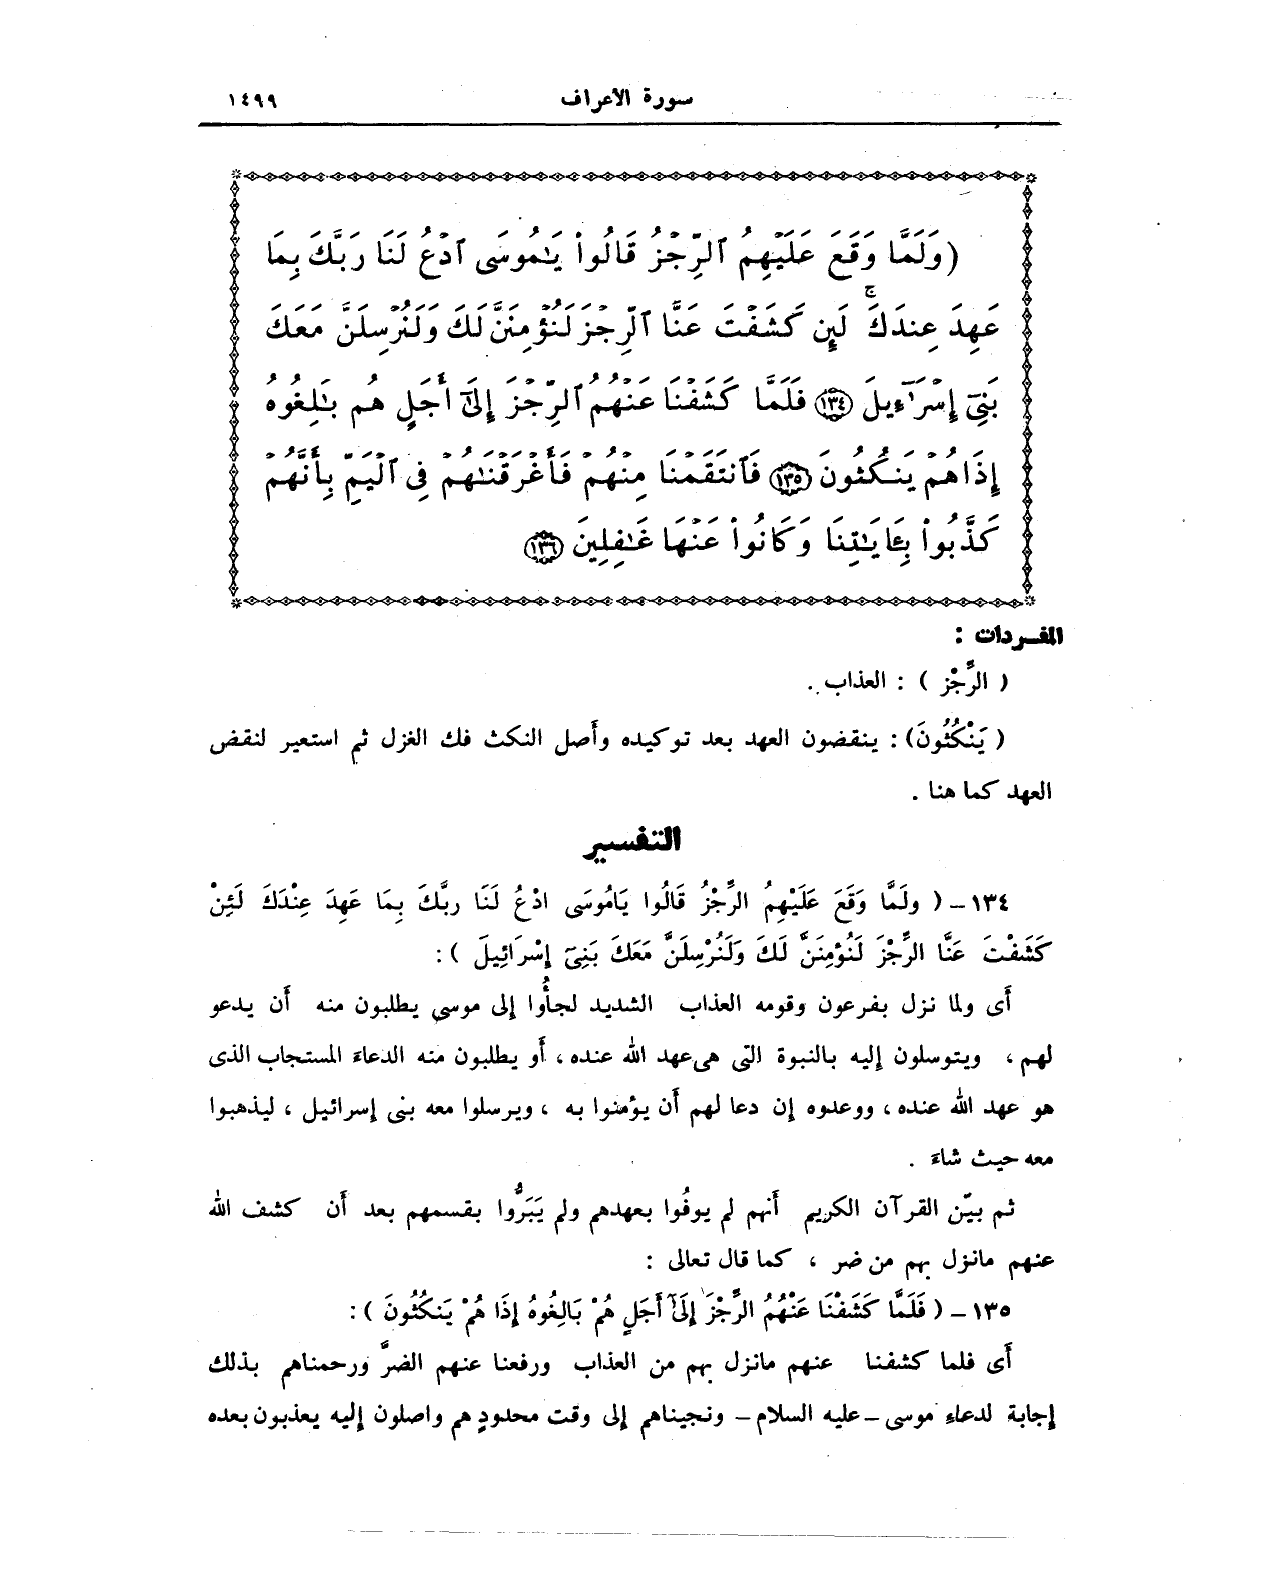 سورة الأعراف ١٤٩٩
(وَلَمَّا وَقَعَ عَلَيْهِمُ ٱلرِّجْزُ قَالُوا۟ يَـٰمُوسَى ٱدْعُ لَنَا رَبَّكَ بِمَا
عَهِدَ عِندَكَ ۖ لَئِن كَشَفْتَ عَنَّا ٱلرِّجْزَ لَنُؤْمِنَنَّ لَكَ وَلَنُرْسِلَنَّ مَعَكَ
بَنِىٓ إِسْرَٰٓءِيلَ ١٣٤ فَلَمَّا كَشَفْنَا عَنْهُمُ ٱلرِّجْزَ إِلَىٰٓ أَجَلٍ هُم بَـٰلِغُوهُ
إِذَا هُمْ يَنكُثُونَ ١٣٥ فَٱنتَقَمْنَا مِنْهُمْ فَأَغْرَقْنَـٰهُمْ فِى ٱلْيَمِّ بِأَنَّهُمْ
كَذَّبُوا۟ بِـَٔايَـٰتِنَا وَكَانُوا۟ عَنْهَا غَـٰفِلِينَ ١٣٦
المفـردات :
( الرِّجْز ) : العذاب .
( يَنْكُثُونَ) : ينقضون العهد بعد توكيده وأصل النكث فك الغزل ثم استعير لنقض
العهد كما هنا .
التفسير
١٣٤ – ( ولَمَّا وَقَعَ عَلَيْهِمُ الرِّجْزُ قَالُوا يَامُوسَى ادْعُ لَنَا ربَّكَ بِمَا عَهِدَ عِنْدَكَ لَئِنْ
كَشَفْتَ عَنَّا الرِّجْزَ لَنُؤْمِنَنَّ لَكَ وَلَنُرْسِلَنَّ مَعَكَ بَنِىٓ إِسْرَائِيلَ ) :
أَى ولما نزل بفرعون وقومه العذاب الشديد لجأُوا إلى موسى يطلبون منه أَن يدعو
لهم ، ويتوسلون إليه بالنبوة التى هى عهد الله عنده ، أَو يطلبون منه الدعاءَ المستجاب الذى
هو عهد الله عنده ، ووعدوه إن دعا لهم أَن يؤمنوا به ، ويرسلوا معه بنى إسرائيل ، ليذهبوا
معه حيث شاءَ .
ثم بيّن القرآن الكريم أَنهم لم يوفُوا بعهدهم ولم يَبَرُّوا بقسمهم بعد أَن كشف الله
عنهم مانزل بهم من ضر ، كما قال تعالى :
١٣٥ – ( فَلَمَّا كَشَفْنَا عَنْهُمُ الرِّجْزَ إِلَىٰٓ أَجَلٍ هُمْ بَالِغُوهُ إِذَا هُمْ يَنكُثُونَ ) :
أَى فلما كشفنا عنهم مانزل بهم من العذاب ورفعنا عنهم الضرَّ ورحمناهم بذلك
إجابة لدعاءِ موسى – عليه السلام – ونجيناهم إلى وقت محدودٍ هم واصلون إليه يعذبون بعده